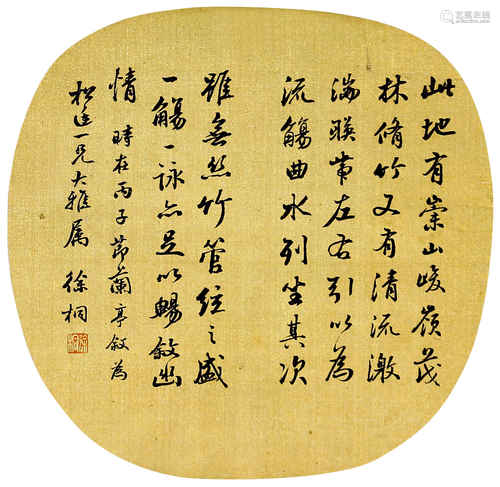 此地有崇山峻嶺茂
林脩竹又有清流激
湍暎帶左右引以為
流觴曲水列坐其次
雖無絲竹管絃之盛
一觴一詠亦足以暢敘幽
情 時在丙子節蘭亭敘為
松廷一兄大雅屬 徐桐